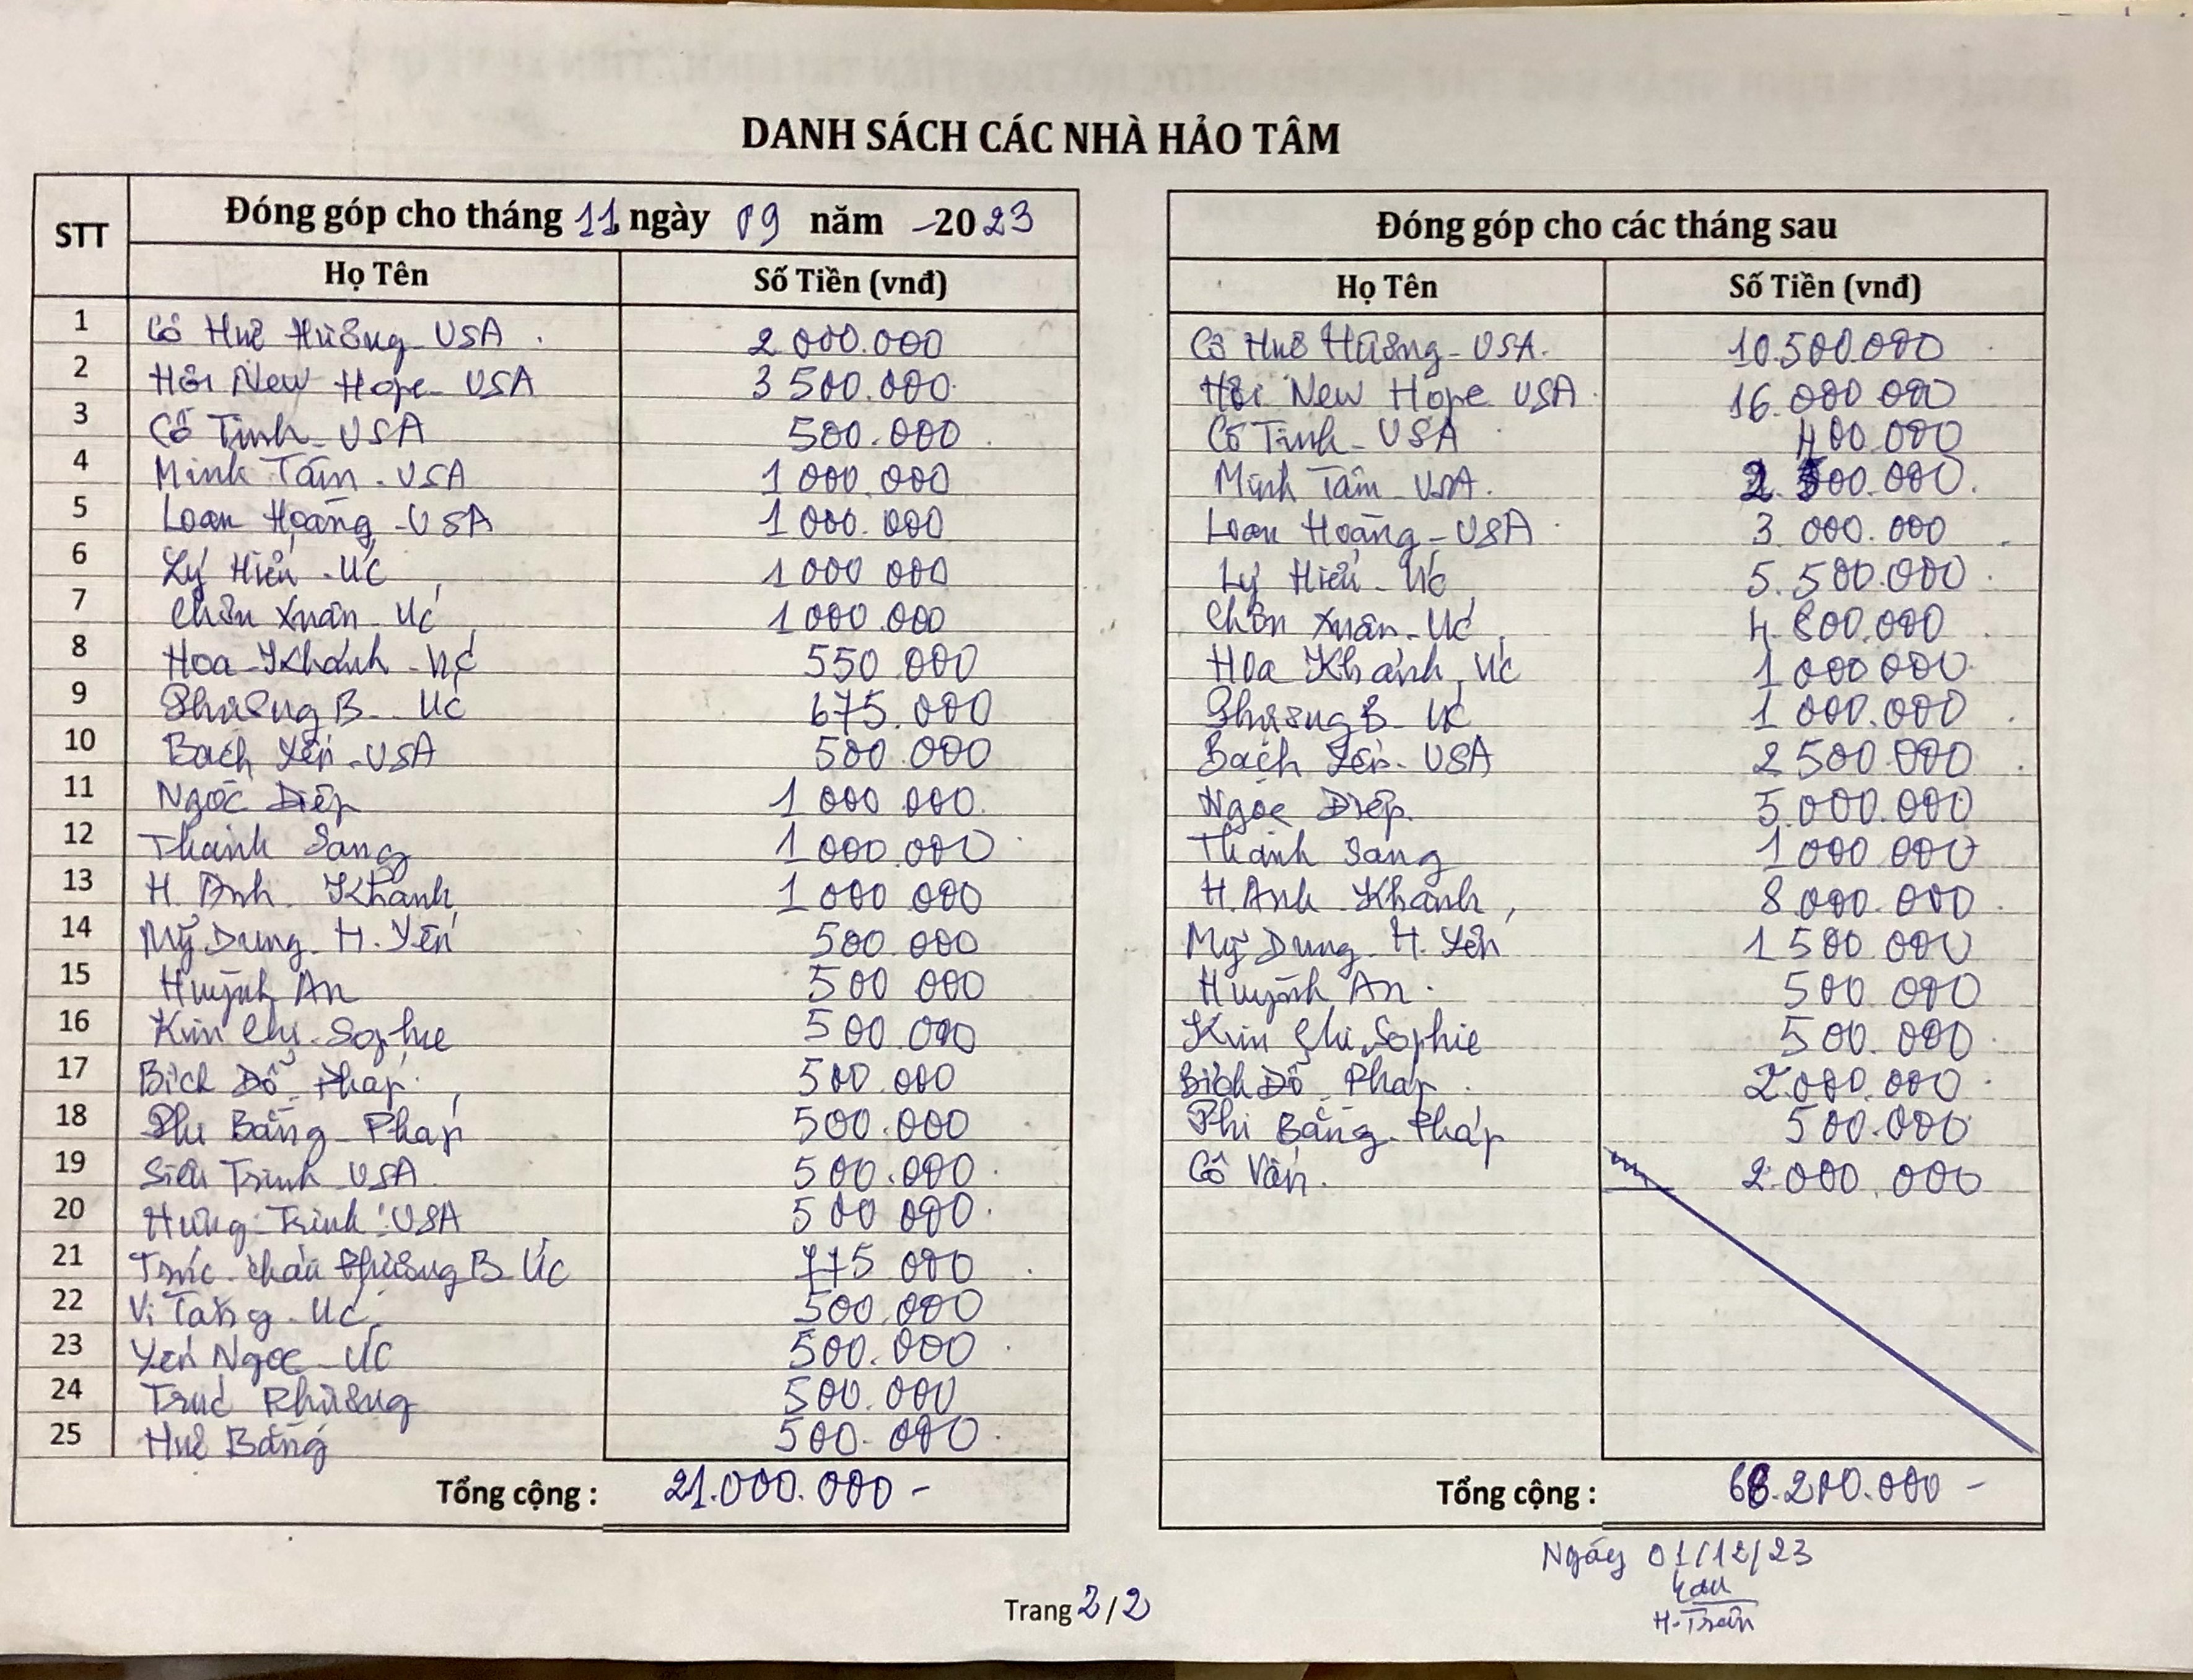 DANH SÁCH CÁC NHÀ HẢO TÂM
STT Đóng góp cho tháng 11 ngày 09 năm 2023 Đóng góp cho các tháng sau
Họ Tên Số Tiền (vnđ) Họ Tên Số Tiền (vnđ)
1 Cô Huê Hương - USA. 2 000.000 Cô Huê Hương - USA. 10.500.000
2 Hội New Hope - USA 3 500.000 Hội New Hope USA 16.000 000
3 Cô Tính - USA 500.000 Cô Tính - USA 400.000
4 Minh Tâm - USA 1 000.000 Minh Tâm - USA. 2.500.000.
5 Loan Hoàng - USA 1 000.000 Loan Hoàng - USA 3 000.000
6 Lý Hiếu - Úc 1 000 000 Lý Hiếu - Úc 5.500.000
7 Chơn Xuân - Úc 1 000.000 Chơn Xuân - Úc 4.800.000
8 Hoa Khánh - Úc 550 000 Hoa Khánh, Úc 1 000 000
9 Phương B - Úc 675.000 Phương B - Úc 1 000.000
10 Bạch Yến - USA 500.000 Bạch Yến - USA 2 500 000
11 Ngọc Diệp 1 000 000. Ngọc Điệp. 5.000.000
12 Thanh Sang 1 000.000 Thanh Sang 1 000 000
13 H. Anh Khánh 1 000 000 H. Anh Khánh, 8 000.000
14 Mỹ Dung - H. Yến 500.000 Mỹ Dung - H. Yến 1 500 000
15 Huỳnh An 500 000 Huỳnh An. 500.000
16 Kim Chy - Sophie 500.000 Kim Chi, Sophie 500.000
17 Bích Đỗ - Pháp. 500.000 Bích Đỗ - Pháp. 2.000.000
18 Phi Bằng - Pháp 500.000 Phi Bằng - Pháp 500.000
19 Siêu Trinh USA. 500.000. Cô Vân. 2.000.000
20 Hưng Trinh USA 500 000.
21 Trúc Châu Phương B Úc 775 000
22 Vi Tăng - Úc 500.000
23 Yến Ngọc - Úc 500.000
24 Trúc Phương 500.000
25 Huê Băng 500.000
Tổng cộng : 21.000.000 - Tổng cộng : 68.200.000 -
Ngày 01/12/23
Trang 2/2
H. Trân